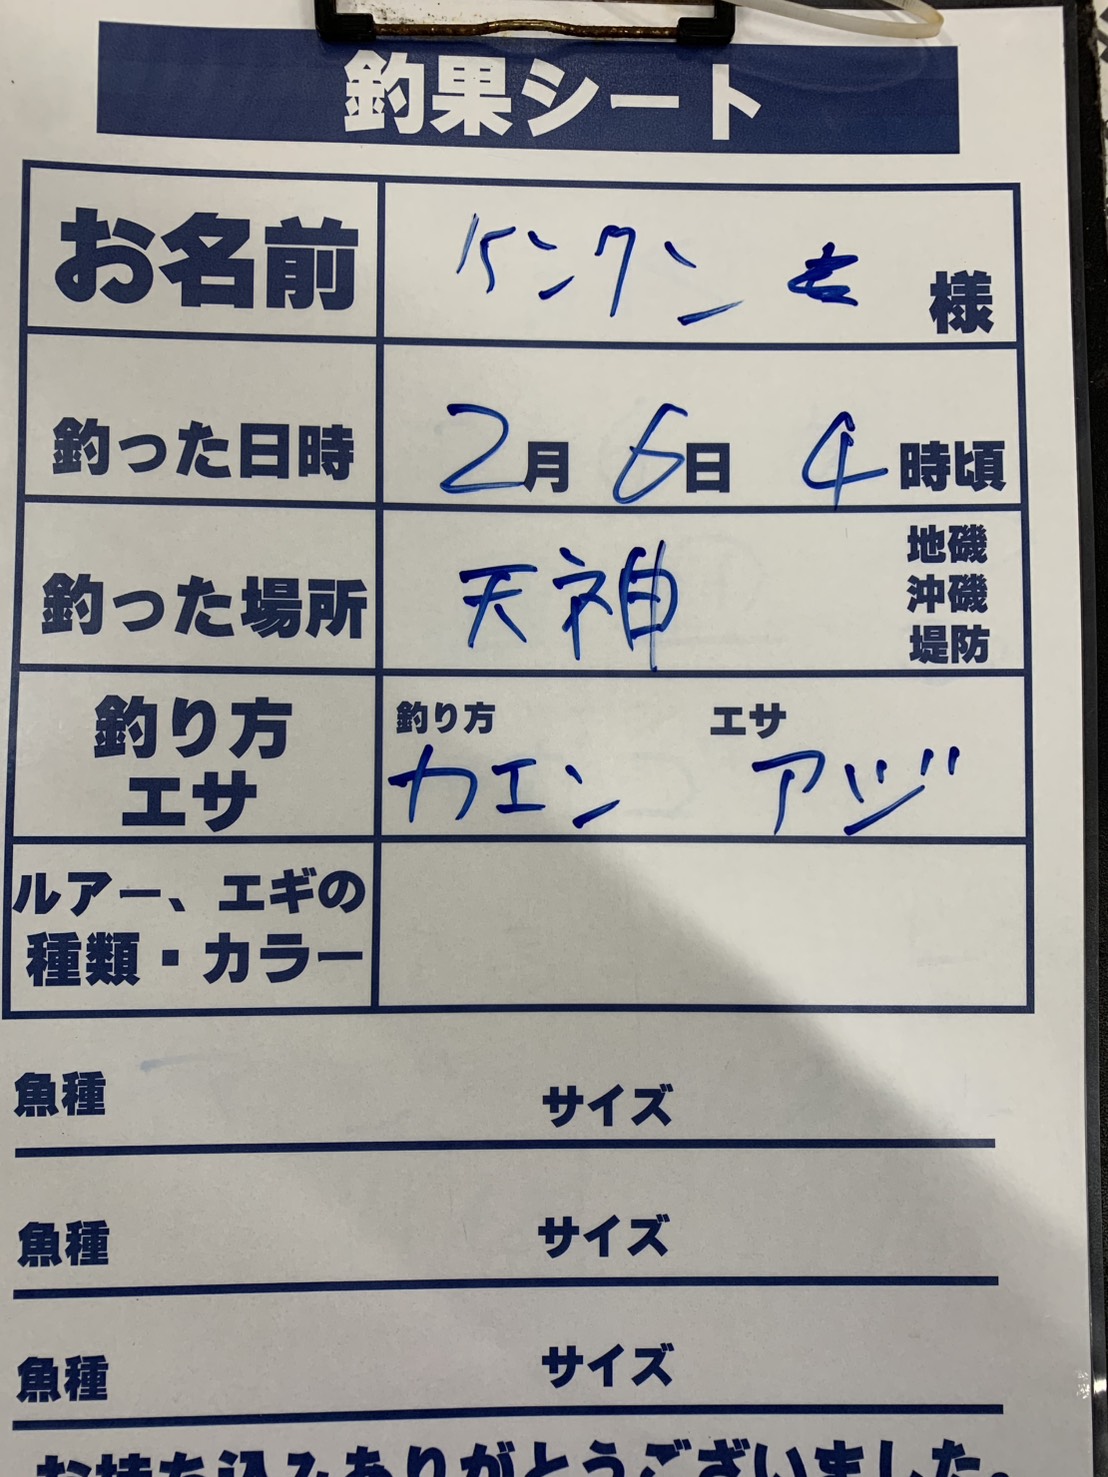 釣果シート
お名前 ケンケン 様
釣った日時 2月 6日 4時頃
釣った場所 天神 地磯
沖磯
堤防
釣り方
エサ
釣り方 エサ
カエン アジ
ルアー、エギの
種類・カラー
魚種 サイズ
魚種 サイズ
魚種 サイズ
お持ち込みありがとうございました。